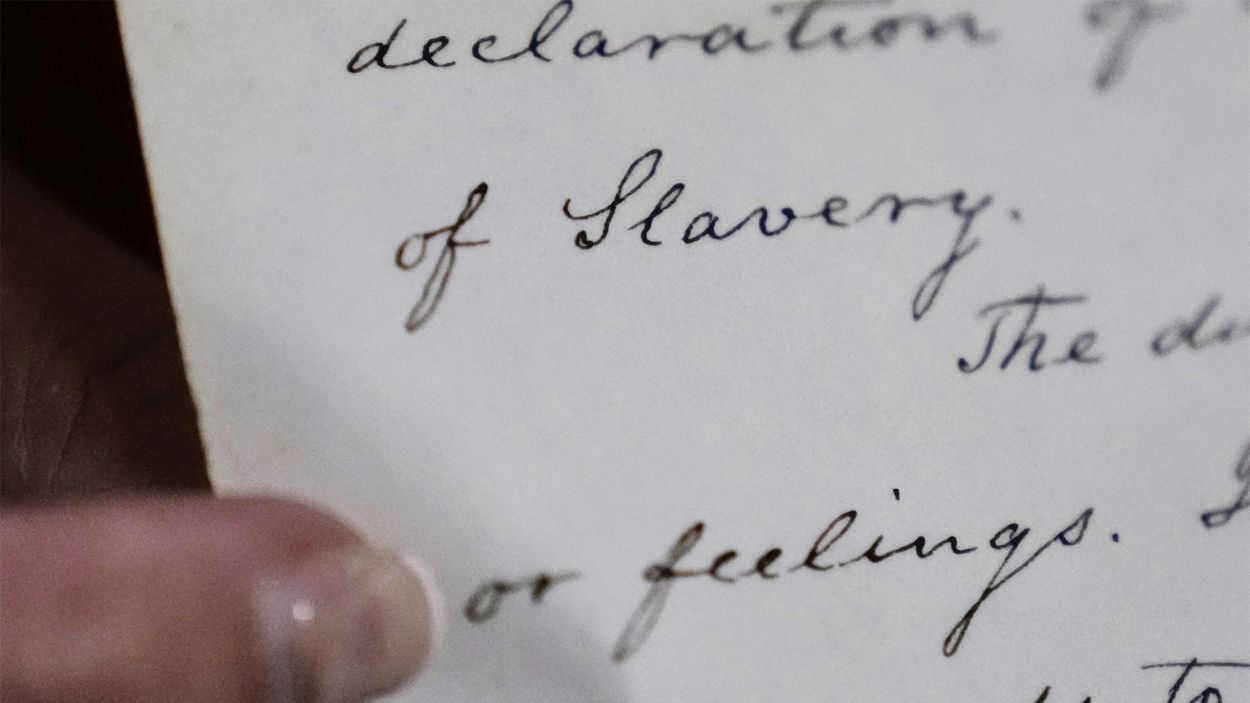 declaration of
of Slavery.
The
or feelings.
to